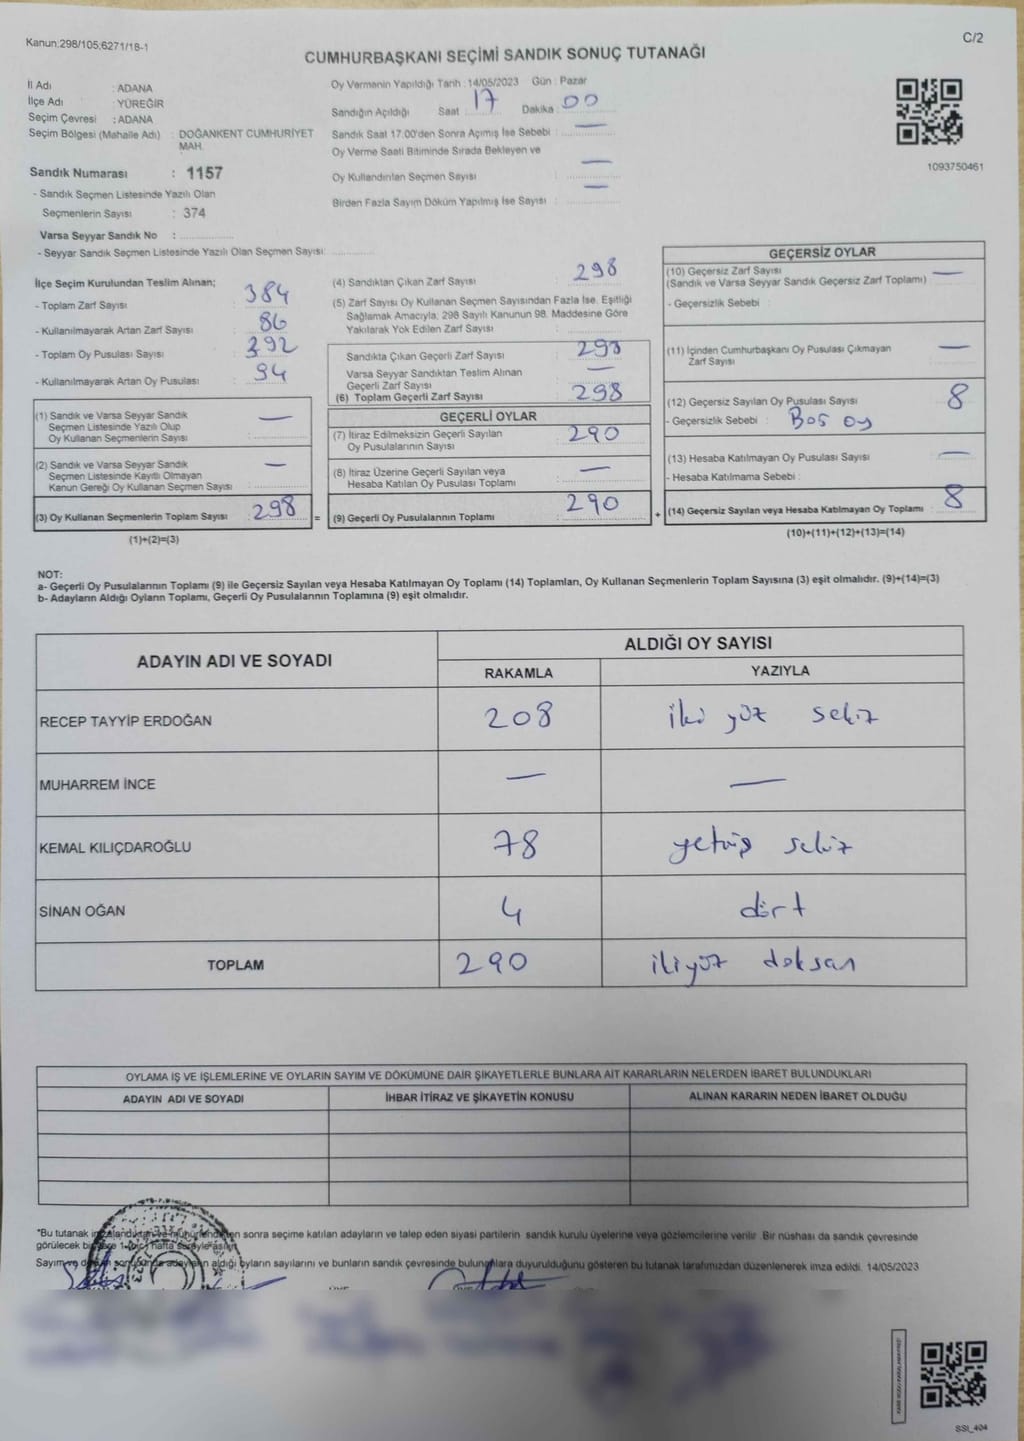 Kanun:298/105;6271/18-1
C/2
CUMHURBAŞKANI SEÇİMİ SANDIK SONUÇ TUTANAĞI
İl Adı : ADANA
İlçe Adı : YÜREĞİR
Seçim Çevresi : ADANA
Seçim Bölgesi (Mahalle Adı) : DOĞANKENT CUMHURİYET MAH.
Sandık Numarası : 1157
- Sandık Seçmen Listesinde Yazılı Olan
Seçmenlerin Sayısı : 374
Varsa Seyyar Sandık No :
- Seyyar Sandık Seçmen Listesinde Yazılı Olan Seçmen Sayısı:
Oy Vermenin Yapıldığı Tarih : 14/05/2023 Gün : Pazar
Sandığın Açıldığı Saat : 17 Dakika : 00
Sandık Saat 17.00'den Sonra Açılmış İse Sebebi : —
Oy Verme Saati Bitiminde Sırada Bekleyen ve
Oy Kullandırılan Seçmen Sayısı : —
Birden Fazla Sayım Döküm Yapılmış İse Sayısı : —
1093750461
İlçe Seçim Kurulundan Teslim Alınan;
- Toplam Zarf Sayısı : 384
- Kullanılmayarak Artan Zarf Sayısı : 86
- Toplam Oy Pusulası Sayısı : 392
- Kullanılmayarak Artan Oy Pusulası : 94
(1) Sandık ve Varsa Seyyar Sandık
Seçmen Listesinde Yazılı Olup
Oy Kullanan Seçmenlerin Sayısı : —
(2) Sandık ve Varsa Seyyar Sandık
Seçmen Listesinde Kayıtlı Olmayan
Kanun Gereği Oy Kullanan Seçmen Sayısı : —
(3) Oy Kullanan Seçmenlerin Toplam Sayısı : 298 =
(1)+(2)=(3)
(4) Sandıktan Çıkan Zarf Sayısı : 298
(5) Zarf Sayısı Oy Kullanan Seçmen Sayısından Fazla İse, Eşitliği
Sağlamak Amacıyla; 298 Sayılı Kanunun 98. Maddesine Göre
Yakılarak Yok Edilen Zarf Sayısı :
Sandıkta Çıkan Geçerli Zarf Sayısı : 298
Varsa Seyyar Sandıktan Teslim Alınan
Geçerli Zarf Sayısı : —
(6) Toplam Geçerli Zarf Sayısı : 298
GEÇERLİ OYLAR
(7) İtiraz Edilmeksizin Geçerli Sayılan
Oy Pusulalarının Sayısı : 290
(8) İtiraz Üzerine Geçerli Sayılan veya
Hesaba Katılan Oy Pusulası Toplamı : —
(9) Geçerli Oy Pusulalarının Toplamı : 290 +
GEÇERSİZ OYLAR
(10) Geçersiz Zarf Sayısı
(Sandık ve Varsa Seyyar Sandık Geçersiz Zarf Toplamı) : —
- Geçersizlik Sebebi :
(11) İçinden Cumhurbaşkanı Oy Pusulası Çıkmayan
Zarf Sayısı : —
(12) Geçersiz Sayılan Oy Pusulası Sayısı : 8
- Geçersizlik Sebebi : Boş oy
(13) Hesaba Katılmayan Oy Pusulası Sayısı : —
- Hesaba Katılmama Sebebi :
(14) Geçersiz Sayılan veya Hesaba Katılmayan Oy Toplamı : 8
(10)+(11)+(12)+(13)=(14)
NOT:
a- Geçerli Oy Pusulalarının Toplamı (9) ile Geçersiz Sayılan veya Hesaba Katılmayan Oy Toplamı (14) Toplamları, Oy Kullanan Seçmenlerin Toplam Sayısına (3) eşit olmalıdır. (9)+(14)=(3)
b- Adayların Aldığı Oyların Toplamı, Geçerli Oy Pusulalarının Toplamına (9) eşit olmalıdır.
ADAYIN ADI VE SOYADI
ALDIĞI OY SAYISI
RAKAMLA YAZIYLA
RECEP TAYYİP ERDOĞAN 208 iki yüz sekiz
MUHARREM İNCE — —
KEMAL KILIÇDAROĞLU 78 yetmiş sekiz
SİNAN OĞAN 4 dört
TOPLAM 290 ikiyüz doksan
OYLAMA İŞ VE İŞLEMLERİNE VE OYLARIN SAYIM VE DÖKÜMÜNE DAİR ŞİKAYETLERLE BUNLARA AİT KARARLARIN NELERDEN İBARET BULUNDUKLARI
ADAYIN ADI VE SOYADI İHBAR İTİRAZ VE ŞİKAYETİN KONUSU ALINAN KARARIN NEDEN İBARET OLDUĞU
*Bu tutanak sonra seçime katılan adayların ve talep eden siyasi partilerin sandık kurulu üyelerine veya gözlemcilerine verilir. Bir nüshası da sandık çevresinde
görülecek bir yere 1 hafta süreyle asılır.
Sayım ve adayların aldığı oyların sayılarını ve bunların sandık çevresinde bulunanlara duyurulduğunu gösteren bu tutanak tarafımızdan düzenlenerek imza edildi. 14/05/2023
SSI_404